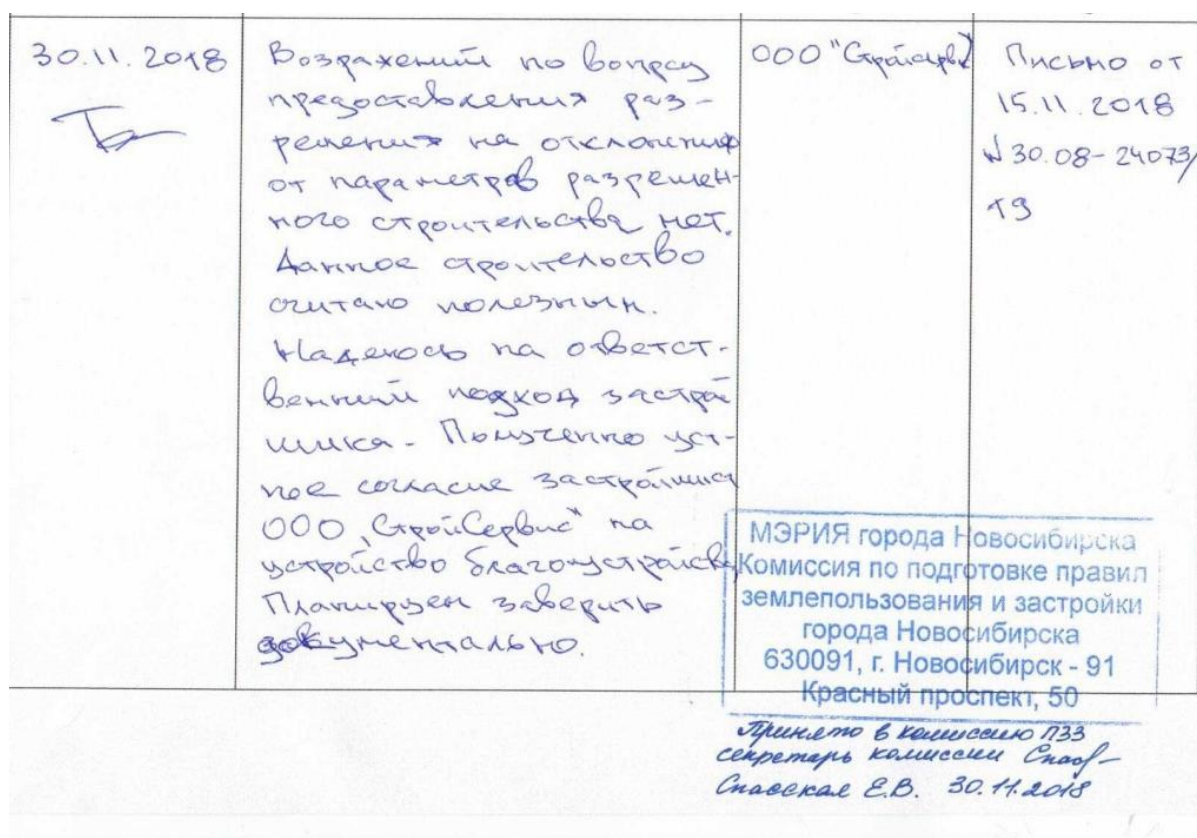 30.11.2018
Возражений по вопросу
предоставления раз-
решения на отклонения
от параметров разрешен-
ного строительства нет.
Данное строительство
считаю полезным.
Надеюсь на ответст-
венный подход застрой
щика. Получено уст-
ное согласие застройщика
ООО "СтройСервис" на
устройство благоустройства
Планируем заверить
документально.
ООО "Стройсервис"
Письмо от
15.11.2018
№30.08-24073/
19
МЭРИЯ города Новосибирска
Комиссия по подготовке правил
землепользования и застройки
города Новосибирска
630091, г. Новосибирск - 91
Красный проспект, 50
Принято в комиссию ПЗЗ
секретарь комиссии
Спасская Е.В. 30.11.2018